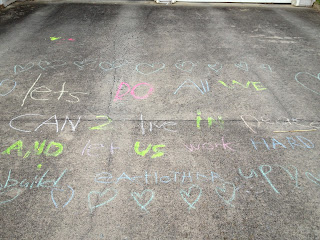 lets DO All WE
CAN 2 live in
AND let US work HARD
build UP